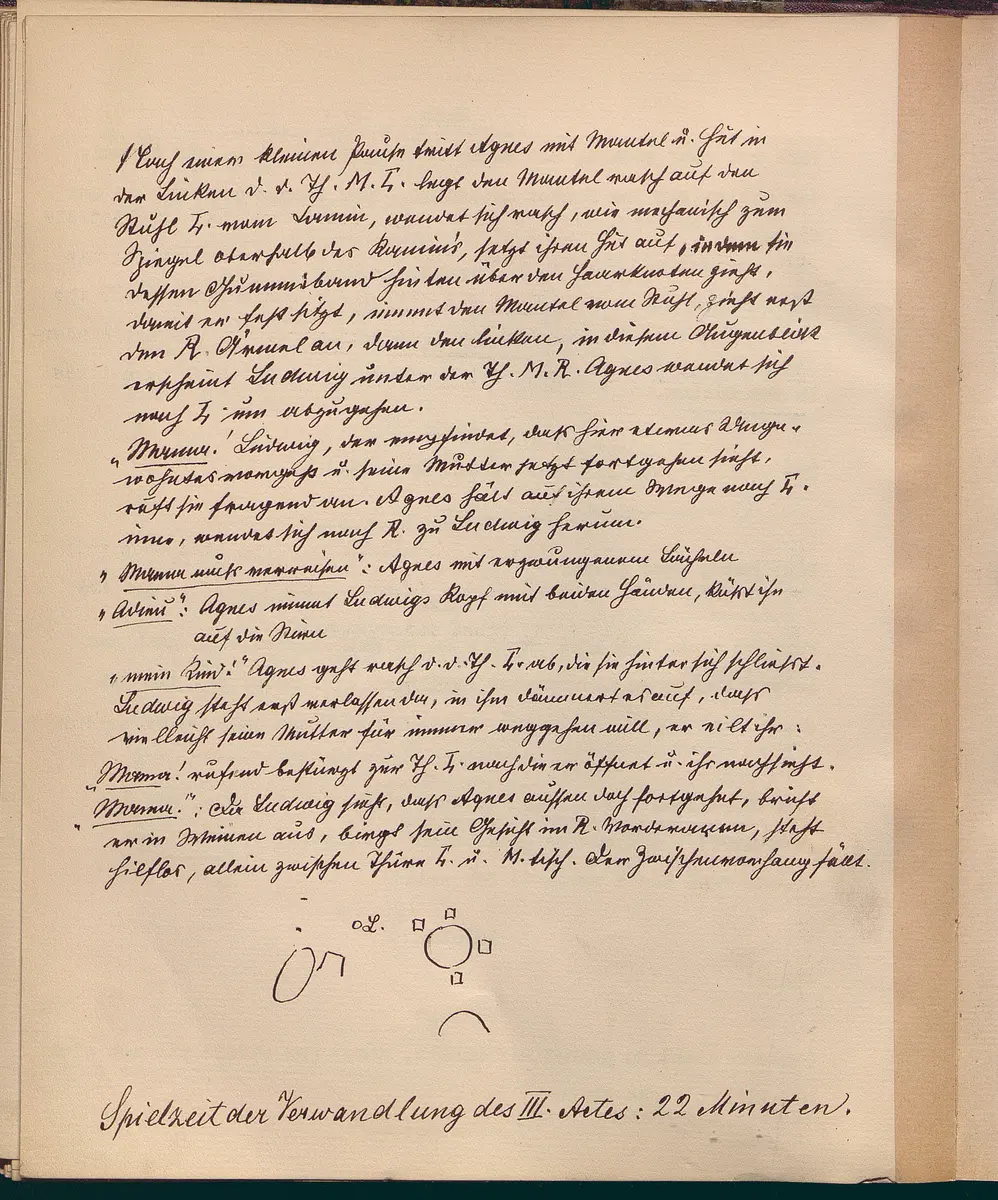 Nach einer kleinen Pause tritt Agnes mit Mantel u. Hut in
der Linken d. d. Th. M. L. legt den Mantel rasch auf den
Stuhl L. vom Camin, wendet sich rasch, wie mechanisch zum
Spiegel oberhalb des Kamins, setzt ihren Hut auf, indem sie
dessen Gummiband hinten über den Haarknoten zieht,
damit er fest sitzt, nimmt den Mantel vom Stuhl, zieht erst
den R. Ärmel an, dann den linken, in diesem Augenblick
erscheint Ludwig unter der Th. M. R. Agnes wendet sich
nach L. um abzugehen.
„Mama! Ludwig, der empfindet, dass hier etwas Unge-
wohntes vorgeht u. seine Mutter jetzt fortgehen sieht,
ruft sie fragend an. Agnes hält auf ihrem Wege nach L.
inne, wendet sich nach R. zu Ludwig herum.
„Mama muss verreisen": Agnes mit erzwungenem Lächeln
„Adieu": Agnes nimmt Ludwigs Kopf mit beiden Händen, küsst ihn
auf die Stirn
„mein Kind!" Agnes geht rasch d. d. Th. L. ab, die sie hinter sich schliesst.
Ludwig steht erst verlassen da, in ihm dämmert es auf, dass
vielleicht seine Mutter für immer weggehen will, er eilt ihr:
„Mama! rufend bestürzt zur Th. L. nach die er öffnet u. ihr nachsieht.
„Mama!": Da Ludwig sieht, dass Agnes aussen doch fortgeht, bricht
er in Weinen aus, birgt sein Gesicht im R. Vorderarm, steht
hilflos, allein zwischen Thüre L. u. M. tisch. Der Zwischenvorhang fällt.
L.
Spielzeit der Verwandlung des III. Actes: 22 Minuten.